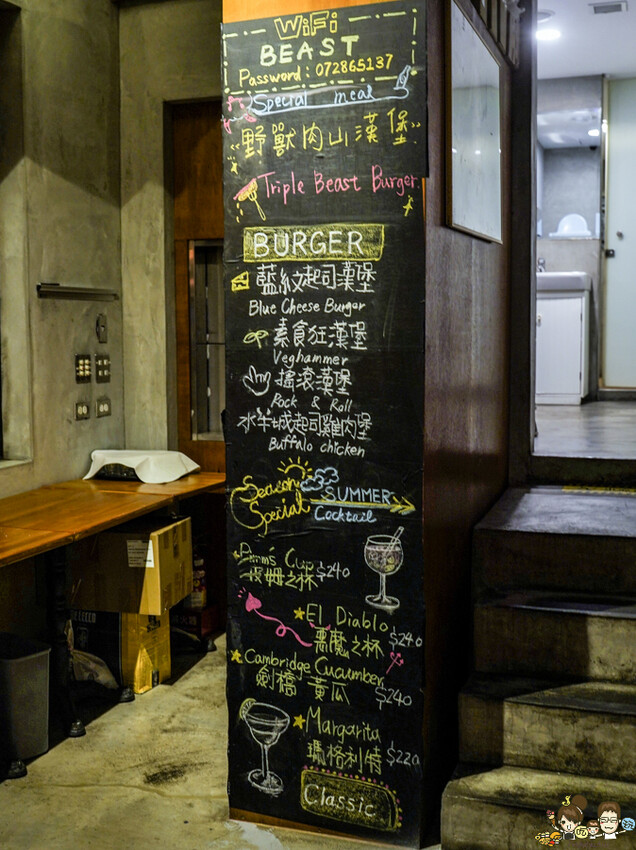 WiFi
BEAST
Password: 072865137
Special meal
野獸肉山漢堡
Triple Beast Burger.
BURGER
藍紋起司漢堡
Blue Cheese Burger
素食狂漢堡
Veghammer
搖滾漢堡
Rock & Roll
水牛城起司雞肉堡
Buffalo chicken
Season Special
SUMMER
Cocktail
Pimm's Cup
皮姆之杯 $240
El Diablo
惡魔之杯 $240
Cambridge Cucumber
劍橋黃瓜 $240
Margarita
瑪格利特 $220
Classic